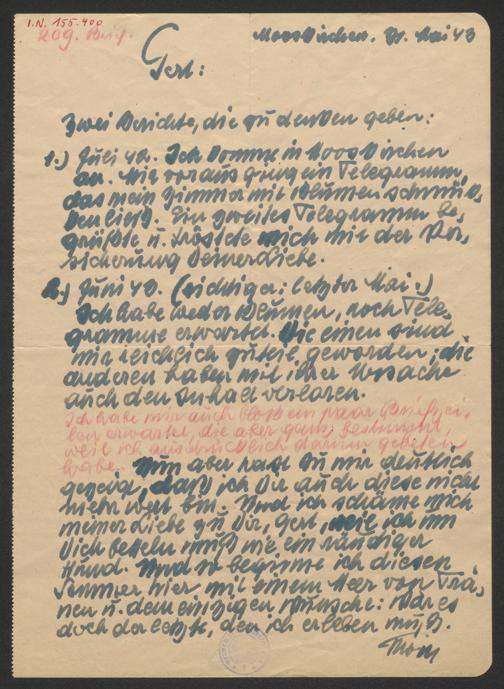 I.N. 155.400
209. Brief.
Mooskirchen. 31. Mai 43
Gert:
Zwei Berichte, die zu denken geben:
1.) Juni 42. Ich komme in Mooskirchen
an. Mir voraus ging ein Telegramm,
das mein Zimmer mit Blumen schmük-
ken ließ. Ein zweites Telegramm be-
grüßte u. tröstete mich mit der Ver-
sicherung Deiner Liebe.
2.) Juni 43. (richtiger: letzter Mai.)
Ich habe weder Blumen, noch Tele-
gramme erwartet. Die einen sind
mir reichlich zuteil geworden, die
anderen haben mit ihrer Ursache
auch den Inhalt verloren.
Ich habe mir auch bloß ein paar Briefzei-
len erwartet, die aber ganz bestimmt,
weil ich ausdrücklich darum gebeten
habe. Nun aber hast Du mir deutlich
gezeigt, daß ich Dir auch diese nicht
mehr wert bin. Und ich schäme mich
meiner Liebe zu Dir, Gert, wie ich um
Dich betteln muß wie ein räudiger
Hund. Und so beginne ich diesen
Sommer hier, mit einem Meer von Trä-
nen u. dem einzigen Wunsche: Wär es
doch der letzte, den ich erleben muß.